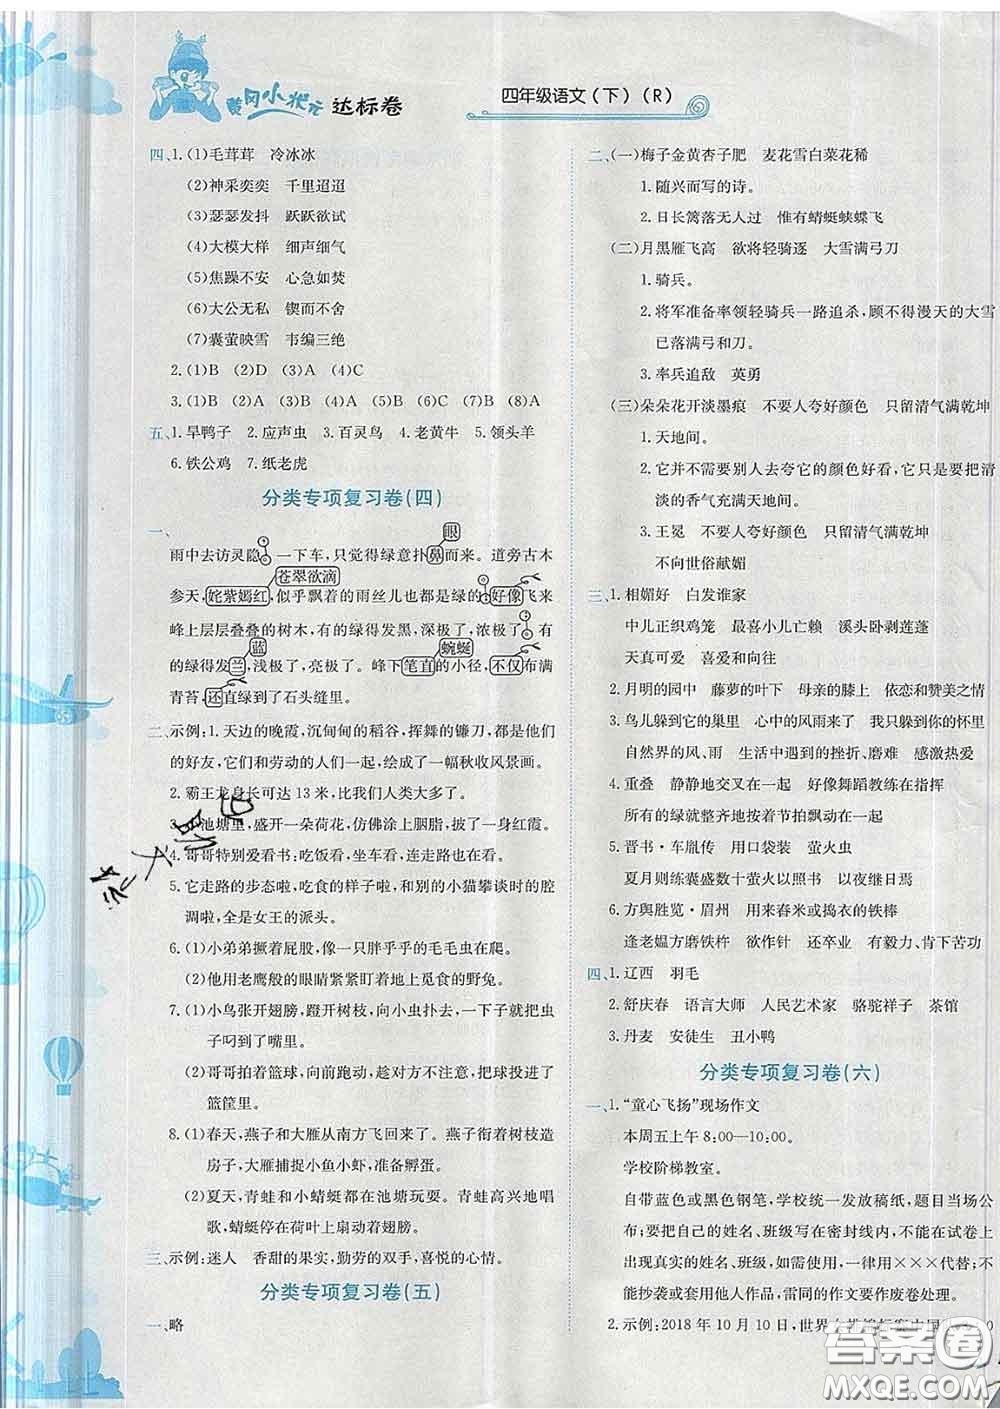 黄冈小状元 达标卷
四年级语文(下)(R)
四、1.(1)毛茸茸 冷冰冰
(2)神采奕奕 千里迢迢
(3)瑟瑟发抖 跃跃欲试
(4)大模大样 细声细气
(5)焦躁不安 心急如焚
(6)大公无私 锲而不舍
(7)囊萤映雪 韦编三绝
2.(1)B (2)D (3)A (4)C
3.(1)B (2)A (3)A (4)A (5)B (6)C (7)B (8)A
五、1.旱鸭子 2.应声虫 3.百灵鸟 4.老黄牛 5.领头羊
6.铁公鸡 7.纸老虎
分类专项复习卷(四)
一、
眼
雨中去访灵隐,一下车,只觉得绿意扑鼻而来。道旁古木
苍翠欲滴
参天,姹紫嫣红,似乎飘着的雨丝儿也都是绿的。好像飞来
峰上层层叠叠的树木,有的绿得发黑,深极了,浓极了。有
蓝 蜿蜒
的绿得发兰,浅极了,亮极了。峰下笔直的小径,不仅布满
青苔,还直绿到了石头缝里。
二、示例:1.天边的晚霞,沉甸甸的稻谷,挥舞的镰刀,都是他们
的好友,它们和劳动的人们一起,绘成了一幅秋收风景画。
2.霸王龙身长可达13米,比我们人类大多了。
3.池塘里,盛开一朵荷花,仿佛涂上胭脂,披了一身红霞。
4.哥哥特别爱看书:吃饭看,坐车看,连走路也在看。
5.它走路的步态啦,吃食的样子啦,和别的小猫攀谈时的腔
调啦,全是女王的派头。
6.(1)小弟弟撅着屁股,像一只胖乎乎的毛毛虫在爬。
(2)他用老鹰般的眼睛紧紧盯着地上觅食的野兔。
7.(1)小鸟张开翅膀,蹬开树枝,向小虫扑去,一口就把虫
子叼到了嘴里。
(2)哥哥拍着篮球,向前跑动,趁大家不注意,把球投进了
篮筐里。
8.(1)春天,燕子和大雁从南方飞回来了。燕子衔着树枝造
房子,大雁捕捉小鱼小虾,准备孵蛋。
(2)夏天,青蛙和小蜻蜓都在池塘玩耍。青蛙高兴地唱
歌,蜻蜓停在荷叶上扇动着翅膀。
三、示例:迷人 香甜的果实,勤劳的双手,喜悦的心情。
分类专项复习卷(五)
一、略
二、(一)梅子金黄杏子肥 麦花雪白菜花稀
1.随兴而写的诗。
2.日长篱落无人过 惟有蜻蜓蛱蝶飞
(二)月黑雁飞高 欲将轻骑逐 大雪满弓刀
1.骑兵。
2.将军准备率领轻骑兵一路追杀,顾不得漫天的大雪
已落满弓和刀。
3.率兵追敌 英勇
(三)朵朵花开淡墨痕 不要人夸好颜色 只留清气满乾坤
1.天地间。
2.它并不需要别人去夸它的颜色好看,它只是要把清
淡的香气充满天地间。
3.王冕 不要人夸好颜色 只留清气满乾坤
不向世俗献媚
三、1.相媚好 白发谁家
中儿正织鸡笼 最喜小儿亡赖 溪头卧剥莲蓬
天真可爱 喜爱和向往
2.月明的园中 藤萝的叶下 母亲的膝上 依恋和赞美之情
3.鸟儿躲到它的巢里 心中的风雨来了 我只躲到你的怀里
自然界的风、雨 生活中遇到的挫折、磨难 感激热爱
4.重叠 静静地交叉在一起 好像舞蹈教练在指挥
所有的绿就整齐地按着节拍飘动在一起
5.晋书·车胤传 用口袋装 萤火虫
夏月则练囊盛数十萤火以照书 以夜继日焉
6.方舆胜览·眉州 用来舂米或捣衣的铁棒
逢老媪方磨铁杵 欲作针 还卒业 有毅力、肯下苦功
四、1.辽西 羽毛
2.舒庆春 语言大师 人民艺术家 骆驼祥子 茶馆
3.丹麦 安徒生 丑小鸭
分类专项复习卷(六)
一、1.“童心飞扬”现场作文
本周五上午8:00—10:00。
学校阶梯教室。
自带蓝色或黑色钢笔,学校统一发放稿纸,题目当场公
布;要把自己的姓名、班级写在密封线内,不能在试卷上
出现真实的姓名、班级,如需使用,一律用×××代替;不
能抄袭或套用他人作品,雷同的作文要作废卷处理。
2.示例:2018年10月10日,世界
答案圈
MXQE.COM